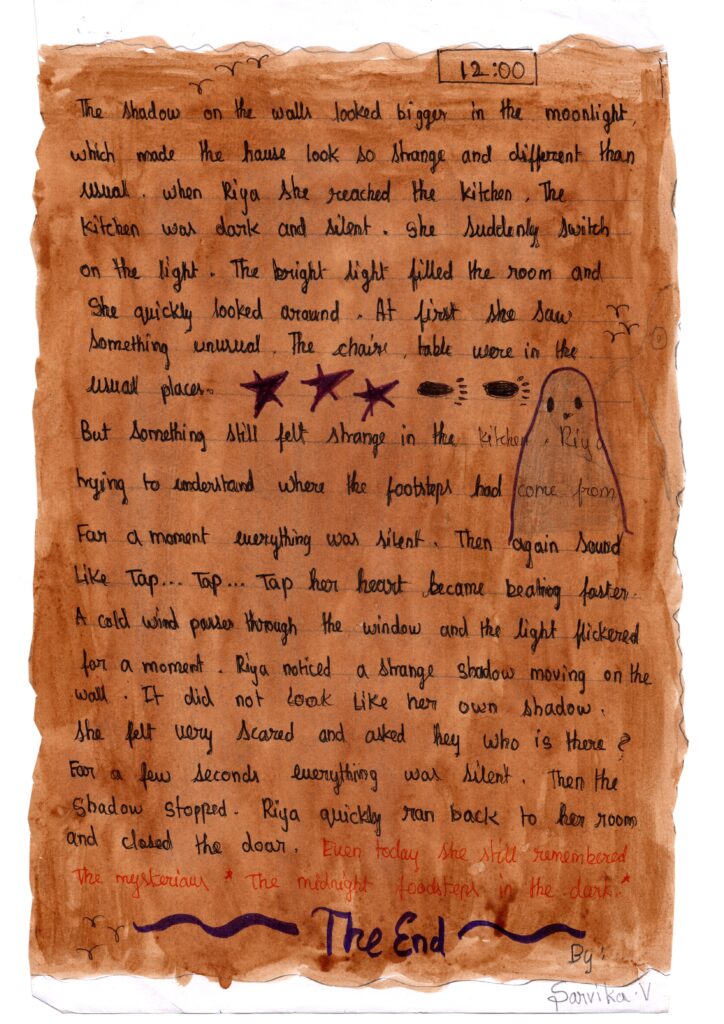 12:00
The shadow on the walls looked bigger in the moonlight,
which made the hause look so strange and different than
usual. when Riya she reached the kitchen. The
kitchen was dark and silent. She suddenly switch
on the light. The bright light filled the room and
She quickly looked around. At first she saw
something unusual. The chairs, table were in the
usual places.
But something still felt strange in the kitchen. Riya
trying to understand where the footsteps had come from
For a moment everything was silent. Then again sound
Like Tap... Tap... Tap her heart became beating faster.
A cold wind passes through the window and the light flickered
for a moment. Riya noticed a strange shadow moving on the
wall. It did not look Like her own shadow.
She felt very scared and asked hey who is there?
For a few seconds everything was silent. Then the
Shadow stopped. Riya quickly ran back to her room
and closed the door. Even today she still remembered
The mysterious * The midnight foodsteps in the dark.*
The End
By:
Sarvika.V